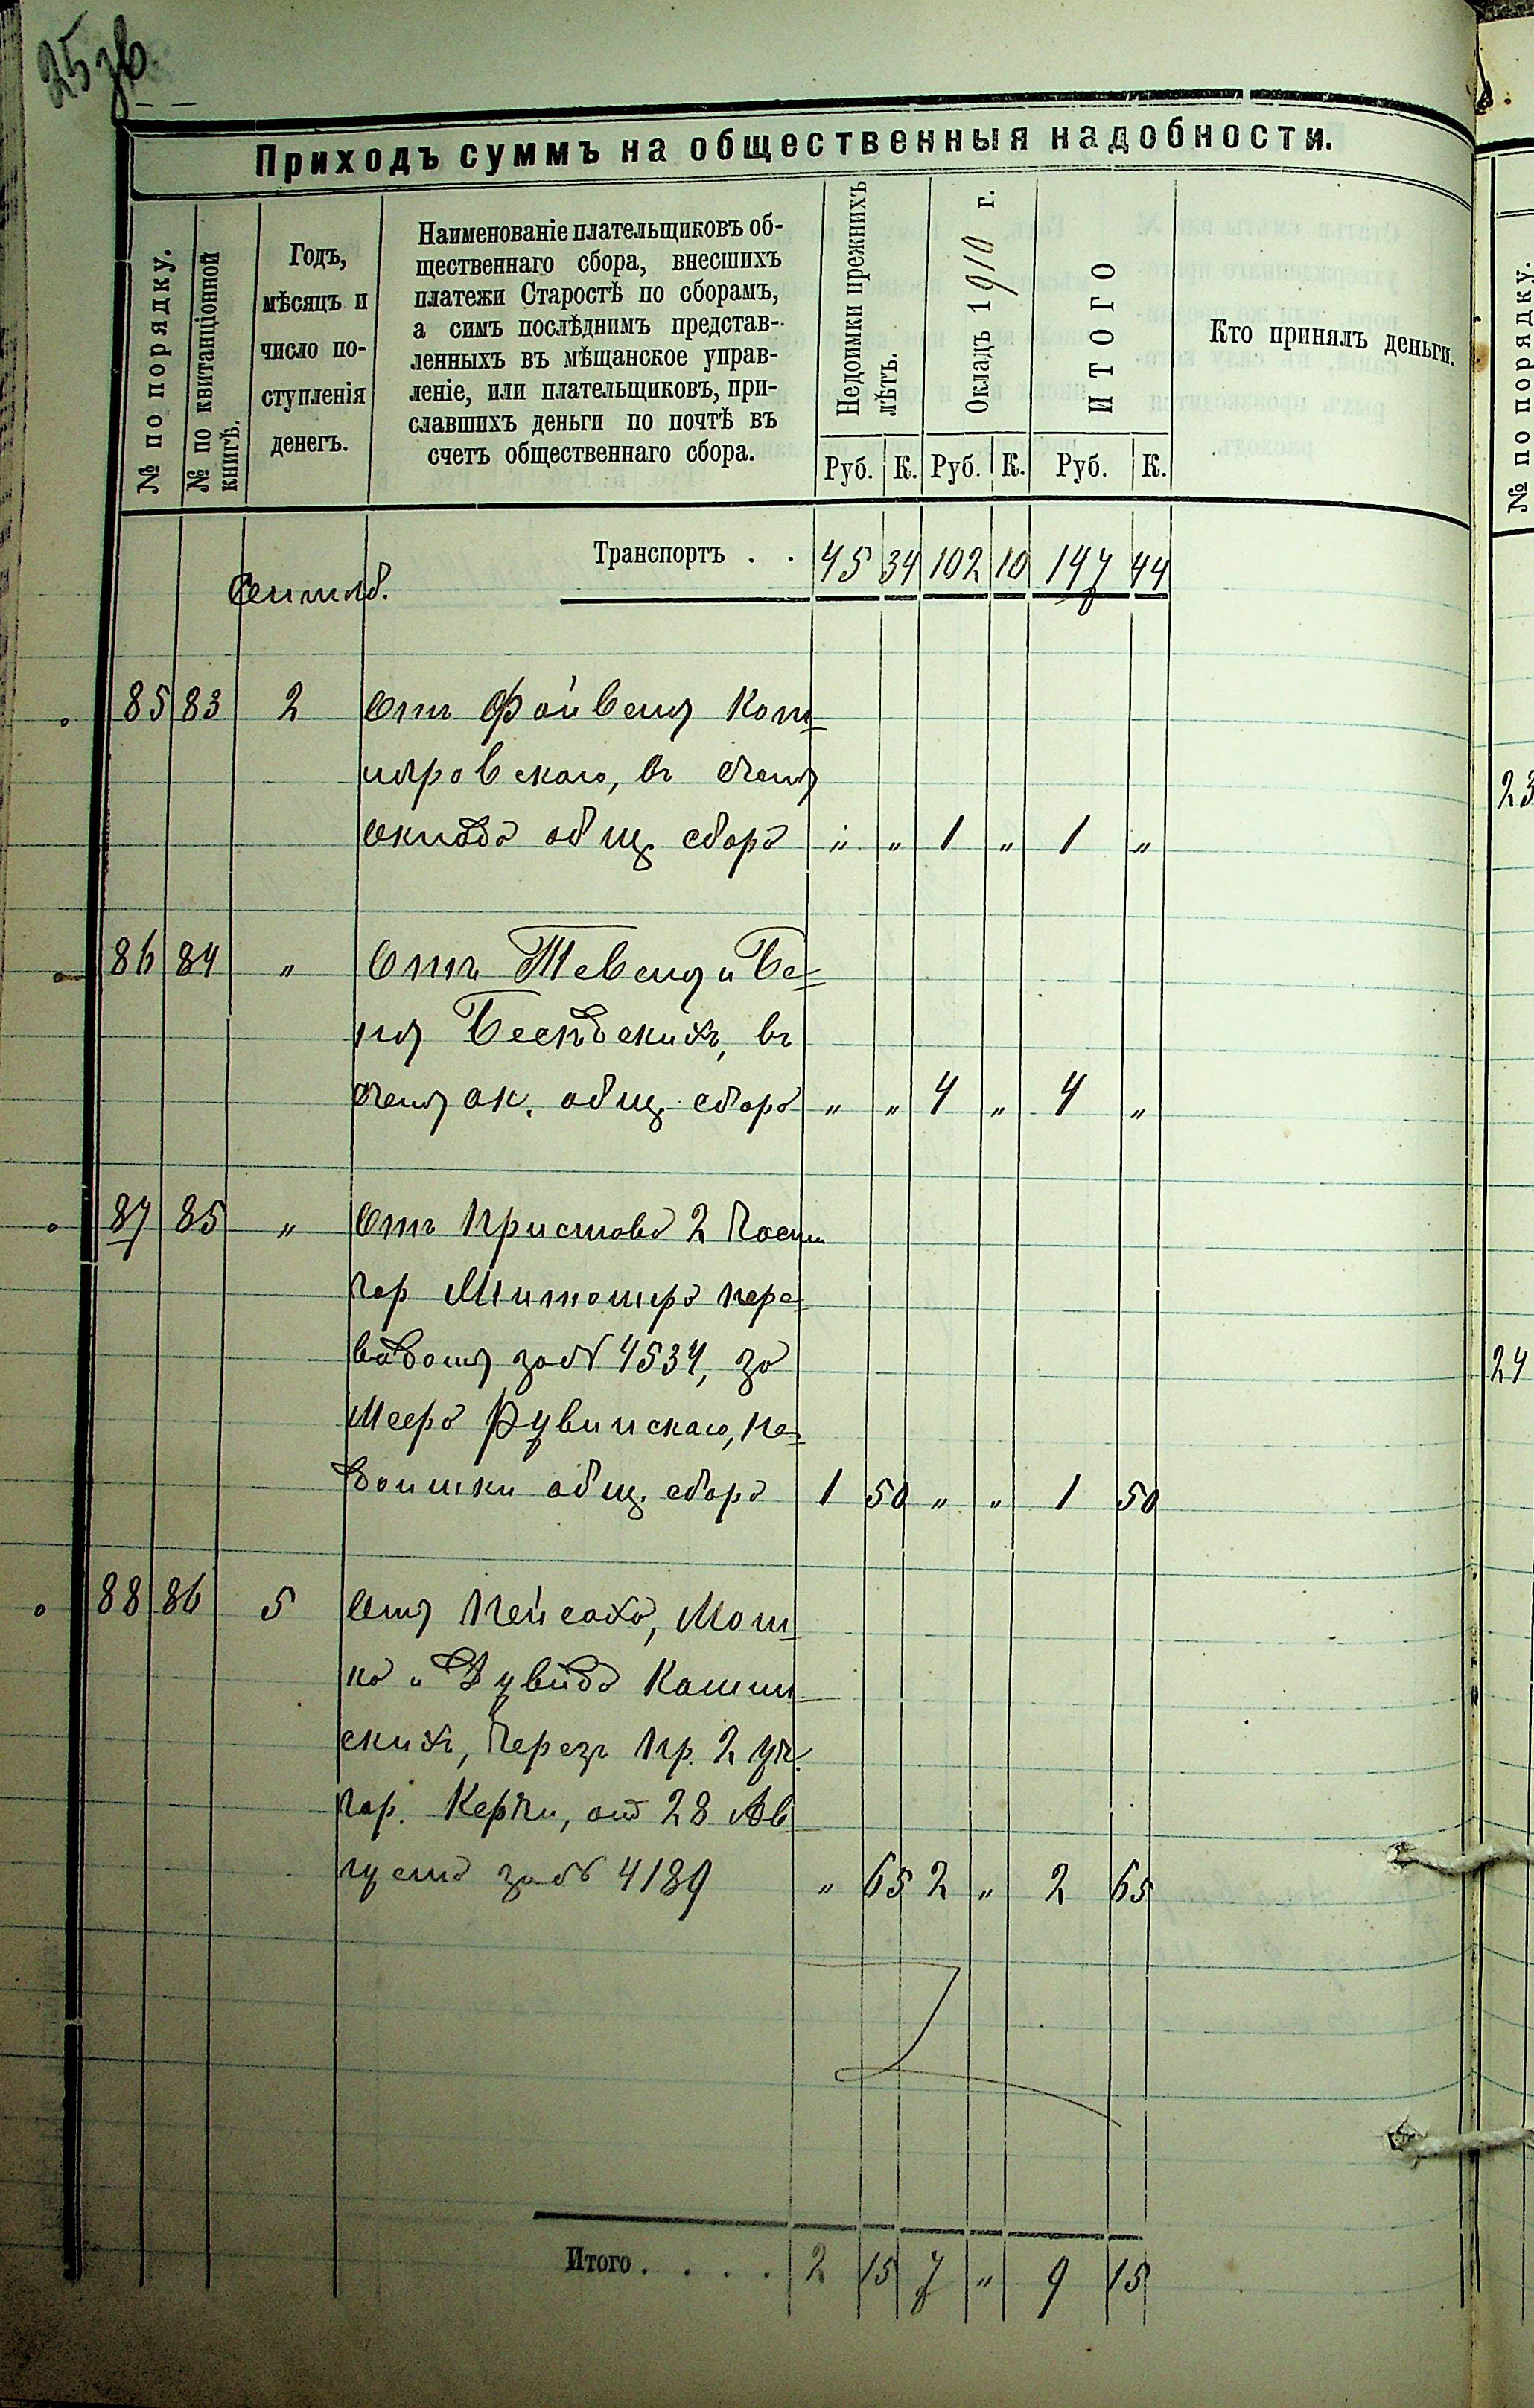 25 зв.
Приходъ суммъ на общественныя надобности.
№ по порядку.
№ по квитанціонной книгѣ.
Годъ,
мѣсяцъ и
число по-
ступленія
денегъ.
Наименованіе плательщиковъ об-
щественнаго сбора, внесшихъ
платежи Старостѣ по сборамъ,
а симъ послѣднимъ представ-
ленныхъ въ мѣщанское управ-
леніе, или плательщиковъ, при-
славшихъ деньги по почтѣ въ
счетъ общественнаго сбора.
Недоимки прежнихъ лѣтъ.
Окладъ 1910 г.
ИТОГО
Кто принялъ деньги.
Руб. К. Руб. К. Руб. К.
Транспортъ . . 45 34 102 10 147 44
Сентяб.
85 83 2 Отъ Файвеля
, въ счетъ
оклада общ. сбора " " 1 " 1 "
86 84 " Отъ и Бе-
, въ
счетъ ок. общ. сбора " " 4 " 4 "
87 85 " Отъ Пристава 2 части
гор Житомира пере-
водомъ за № 4534, за
Меера Рувинскаго, не-
доимки общ. сбора 1 50 " " 1 50
88 86 5 Отъ Пейсаха, Мош-
ка и Дувида Камин-
скихъ, Черезъ Пр. 2 уч.
гор. Керчи, отъ 28 Ав-
густа за № 4189 " 65 2 " 2 65
Итого . . . . 2 15 7 " 9 15
№ по порядку.
23
24